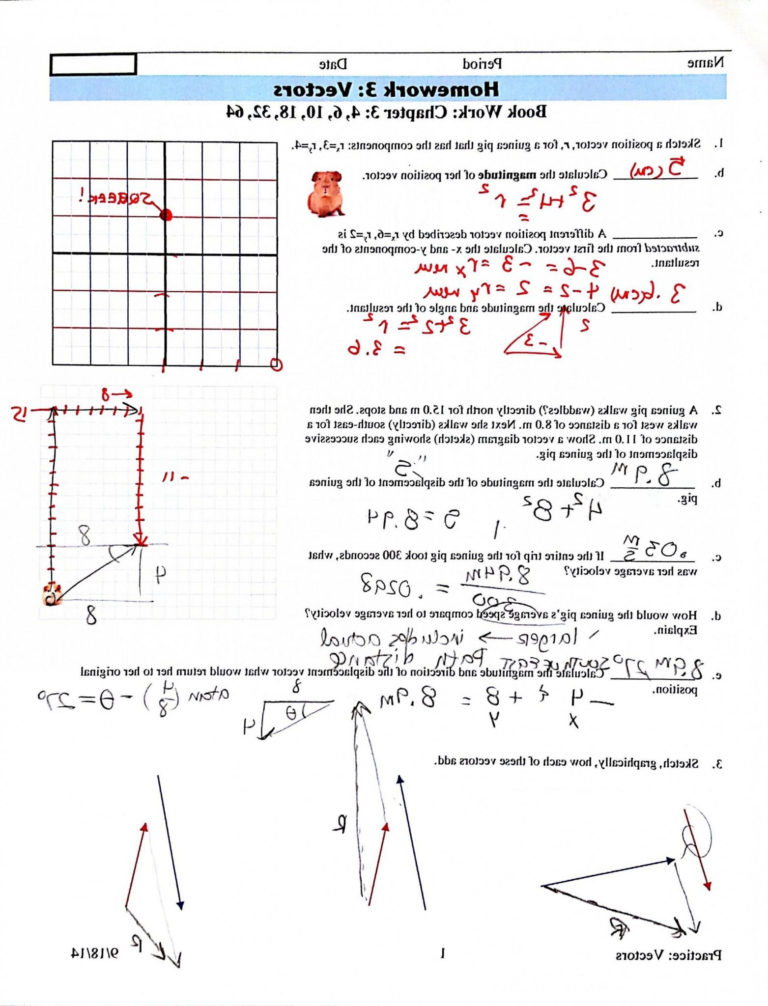 Name Period Date
Homework 3: Vectors
Book Work: Chapter 3: 4, 6, 10, 18, 32, 64
1. Sketch a position vector, r, for a guinea pig that has the components: rₓ=3, rᵧ=4.
b. 5 (cm) Calculate the magnitude of her position vector.
3² + 4² = r²
=
SQEEEK!
c. A different position vector described by rₓ=6, rᵧ=2 is
subtracted from the first vector. Calculate the x- and y-components of the
resultant.
3-6 = -3 = rx new
4-2 = 2 = ry new
3.6(cm)
d. Calculate the magnitude and angle of the resultant.
3²+2² = r²
= 3.6
2
-3
2. A guinea pig walks (waddles?) directly north for 15.0 m and stops. She then
walks west for a distance of 8.0 m. Next she walks (directly) south-east for a
distance of 11.0 m. Show a vector diagram (sketch) showing each successive
displacement of the guinea pig.
15
8
-11
8
4
8
"S"
b. 8.9 m Calculate the magnitude of the displacement of the guinea
pig.
4² + 8²
= 8.94
c. .03 m/s If the entire trip for the guinea pig took 300 seconds, what
was her average velocity?
8.94m
300
= .0298
d. How would the guinea pig's average speed compare to her average velocity?
Explain.
larger → includes actual
path distance
e. 8.9m 27° southeast Calculate the magnitude and direction of the displacement vector what would return her to her original
position.
-4 + 8 = 8.9m
x y
8
4
θ
atan (4/8) - θ = 27°
3. Sketch, graphically, how each of these vectors add.
R
R
R
Practice: Vectors 1 9/18/14